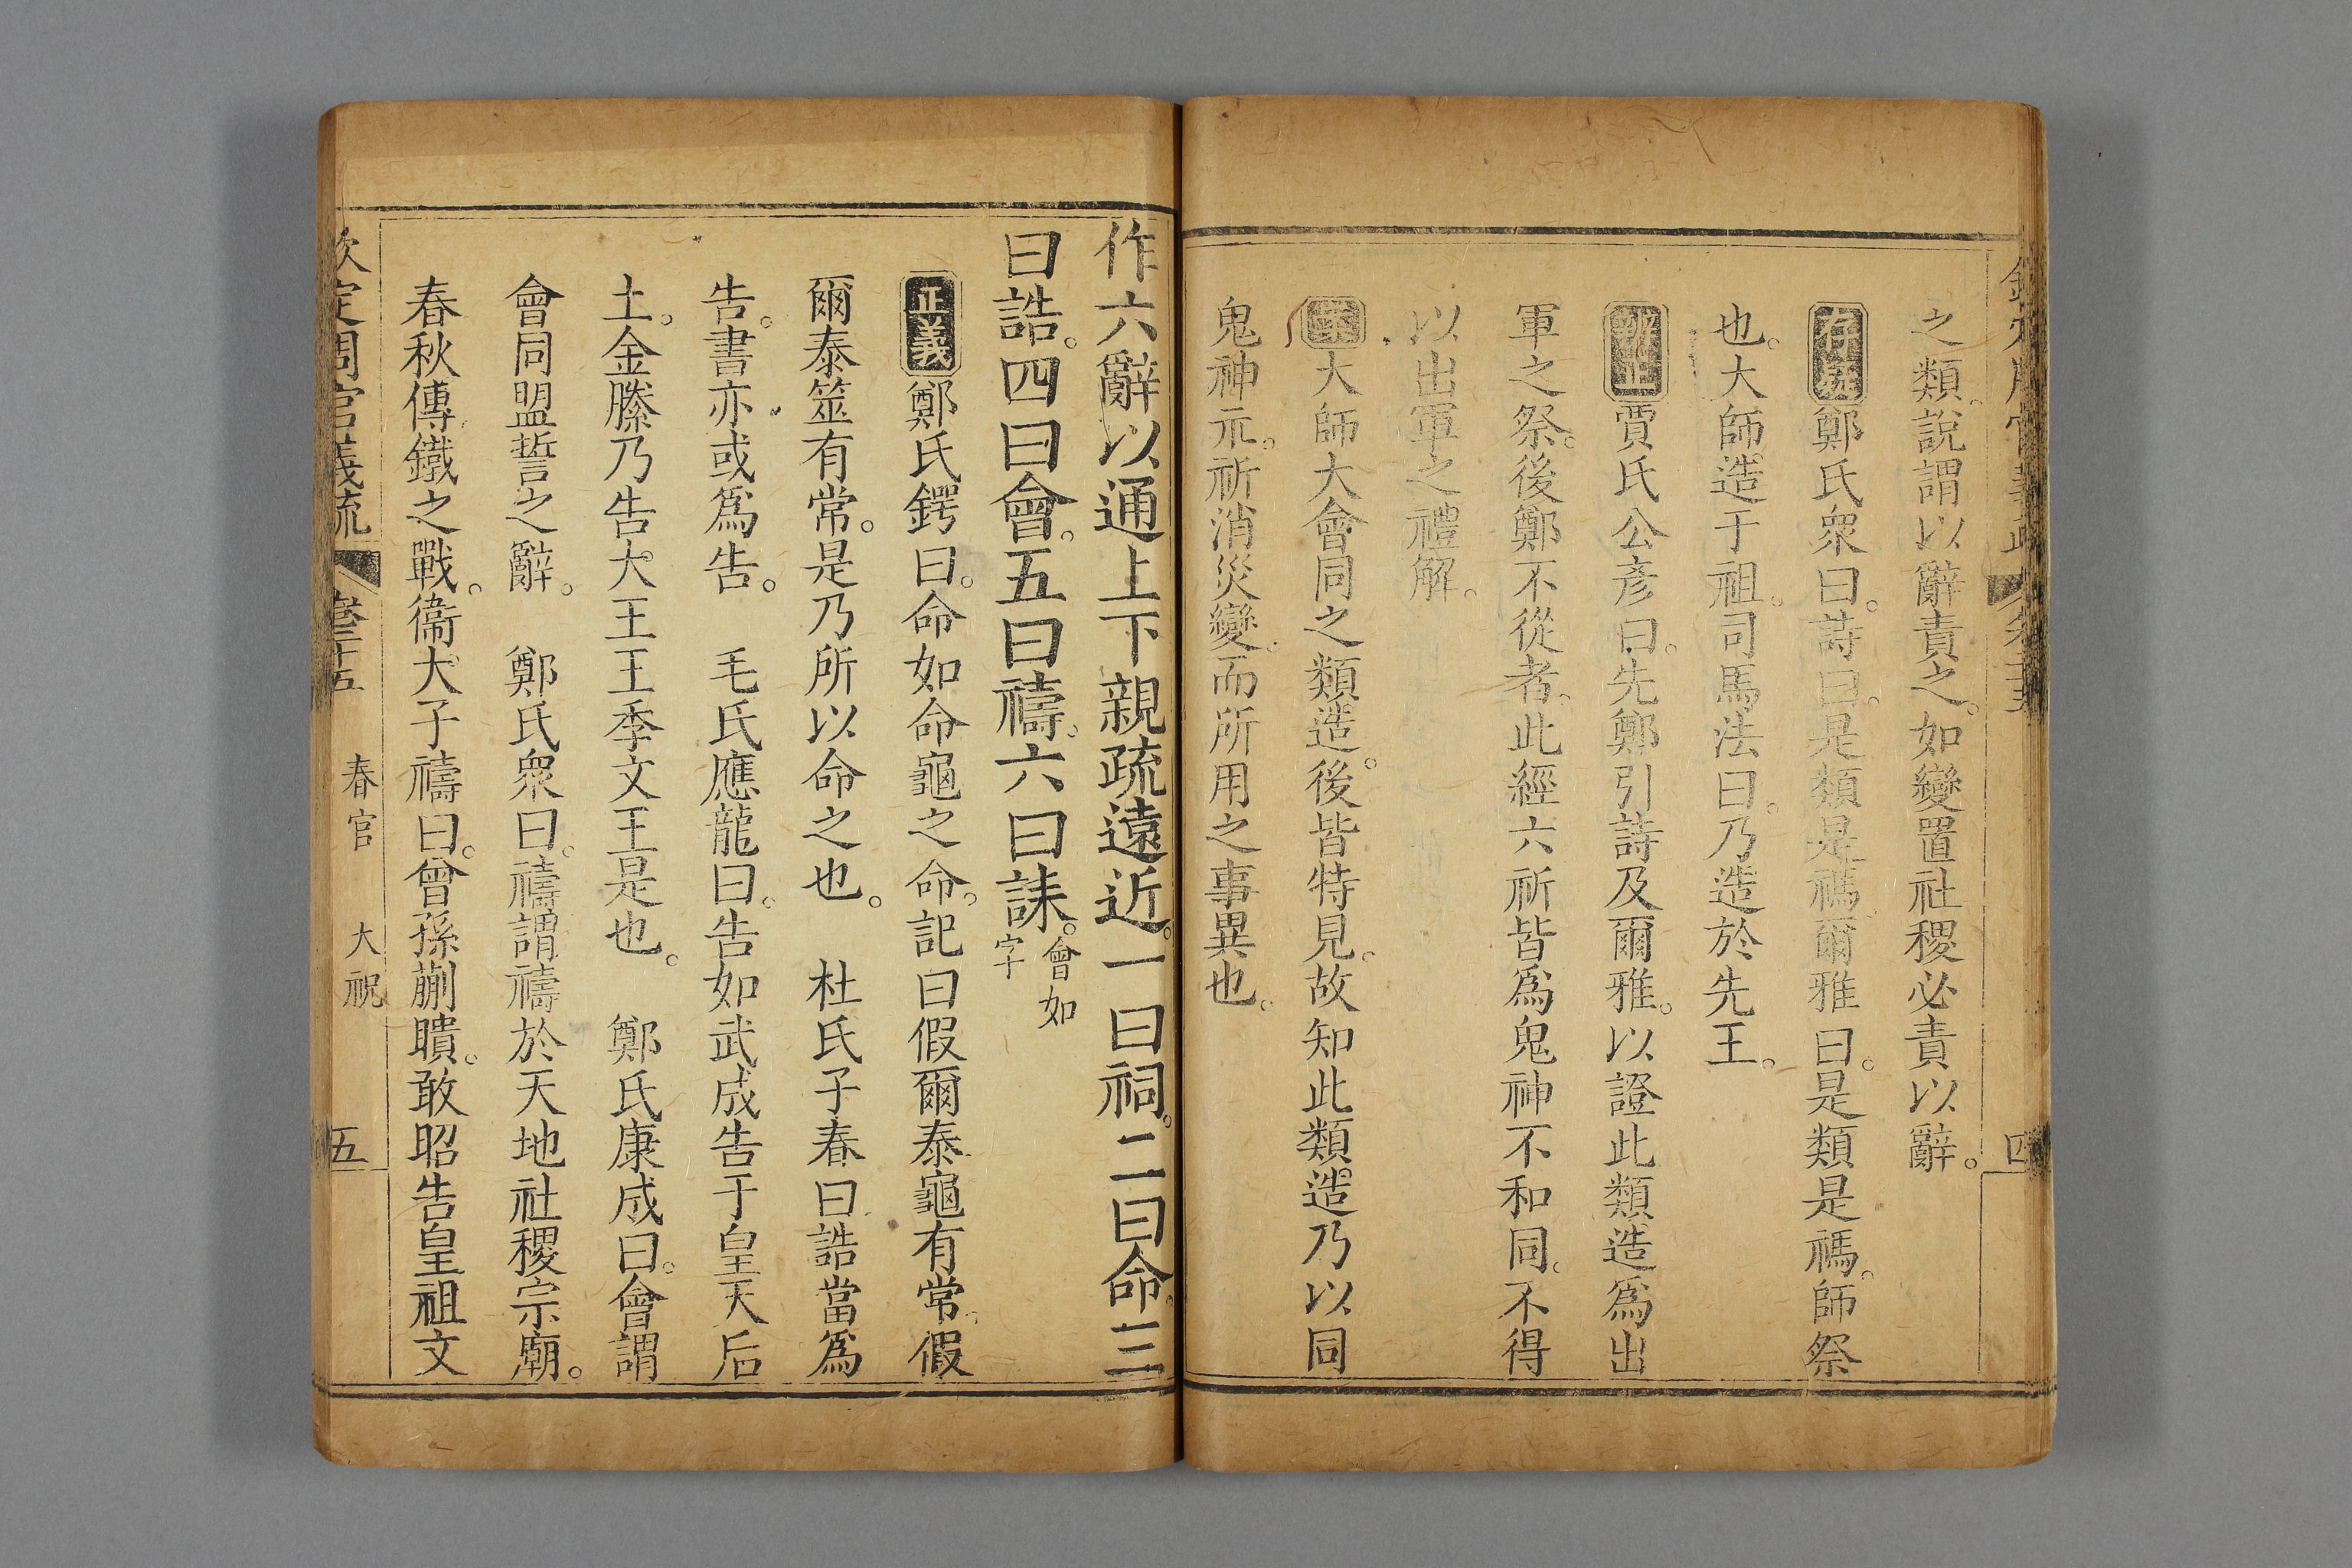 之類說謂以辭責之。如變置社稷必責以辭。
存疑鄭氏衆曰。詩曰。是類是禡。爾雅曰。是類是禡。師祭
也。大師。造于祖。司馬法曰。乃造於先王。
辨正賈氏公彥曰。先鄭引詩及爾雅。以證此類造爲出
軍之祭。後鄭不從者。此經六祈皆爲鬼神不和同。不得
以出軍之禮解。
案大師大會同之類造。後皆特見。故知此類造乃以同
鬼神示。祈消災變。而所用之事異也。
四
作六辭以通上下親疏遠近。一曰祠。二曰命。三
曰誥。四曰會。五曰禱。六曰誄。會如
字
正義鄭氏鍔曰。命如命龜之命。記曰假爾泰龜有常。假
爾泰筮有常。是乃所以命之也。 杜氏子春曰誥當爲
告。書亦或爲告。 毛氏應龍曰。告如武成告于皇天后
土。金縢乃告大王王季文王是也。 鄭氏康成曰。會謂
會同盟誓之辭。 鄭氏衆曰。禱謂禱於天地社稷宗廟。
春秋傳鐵之戰。衞大子禱曰。曾孫蒯聵。敢昭告皇祖文
欽定周官義疏 卷二十五 春官 大祝 五